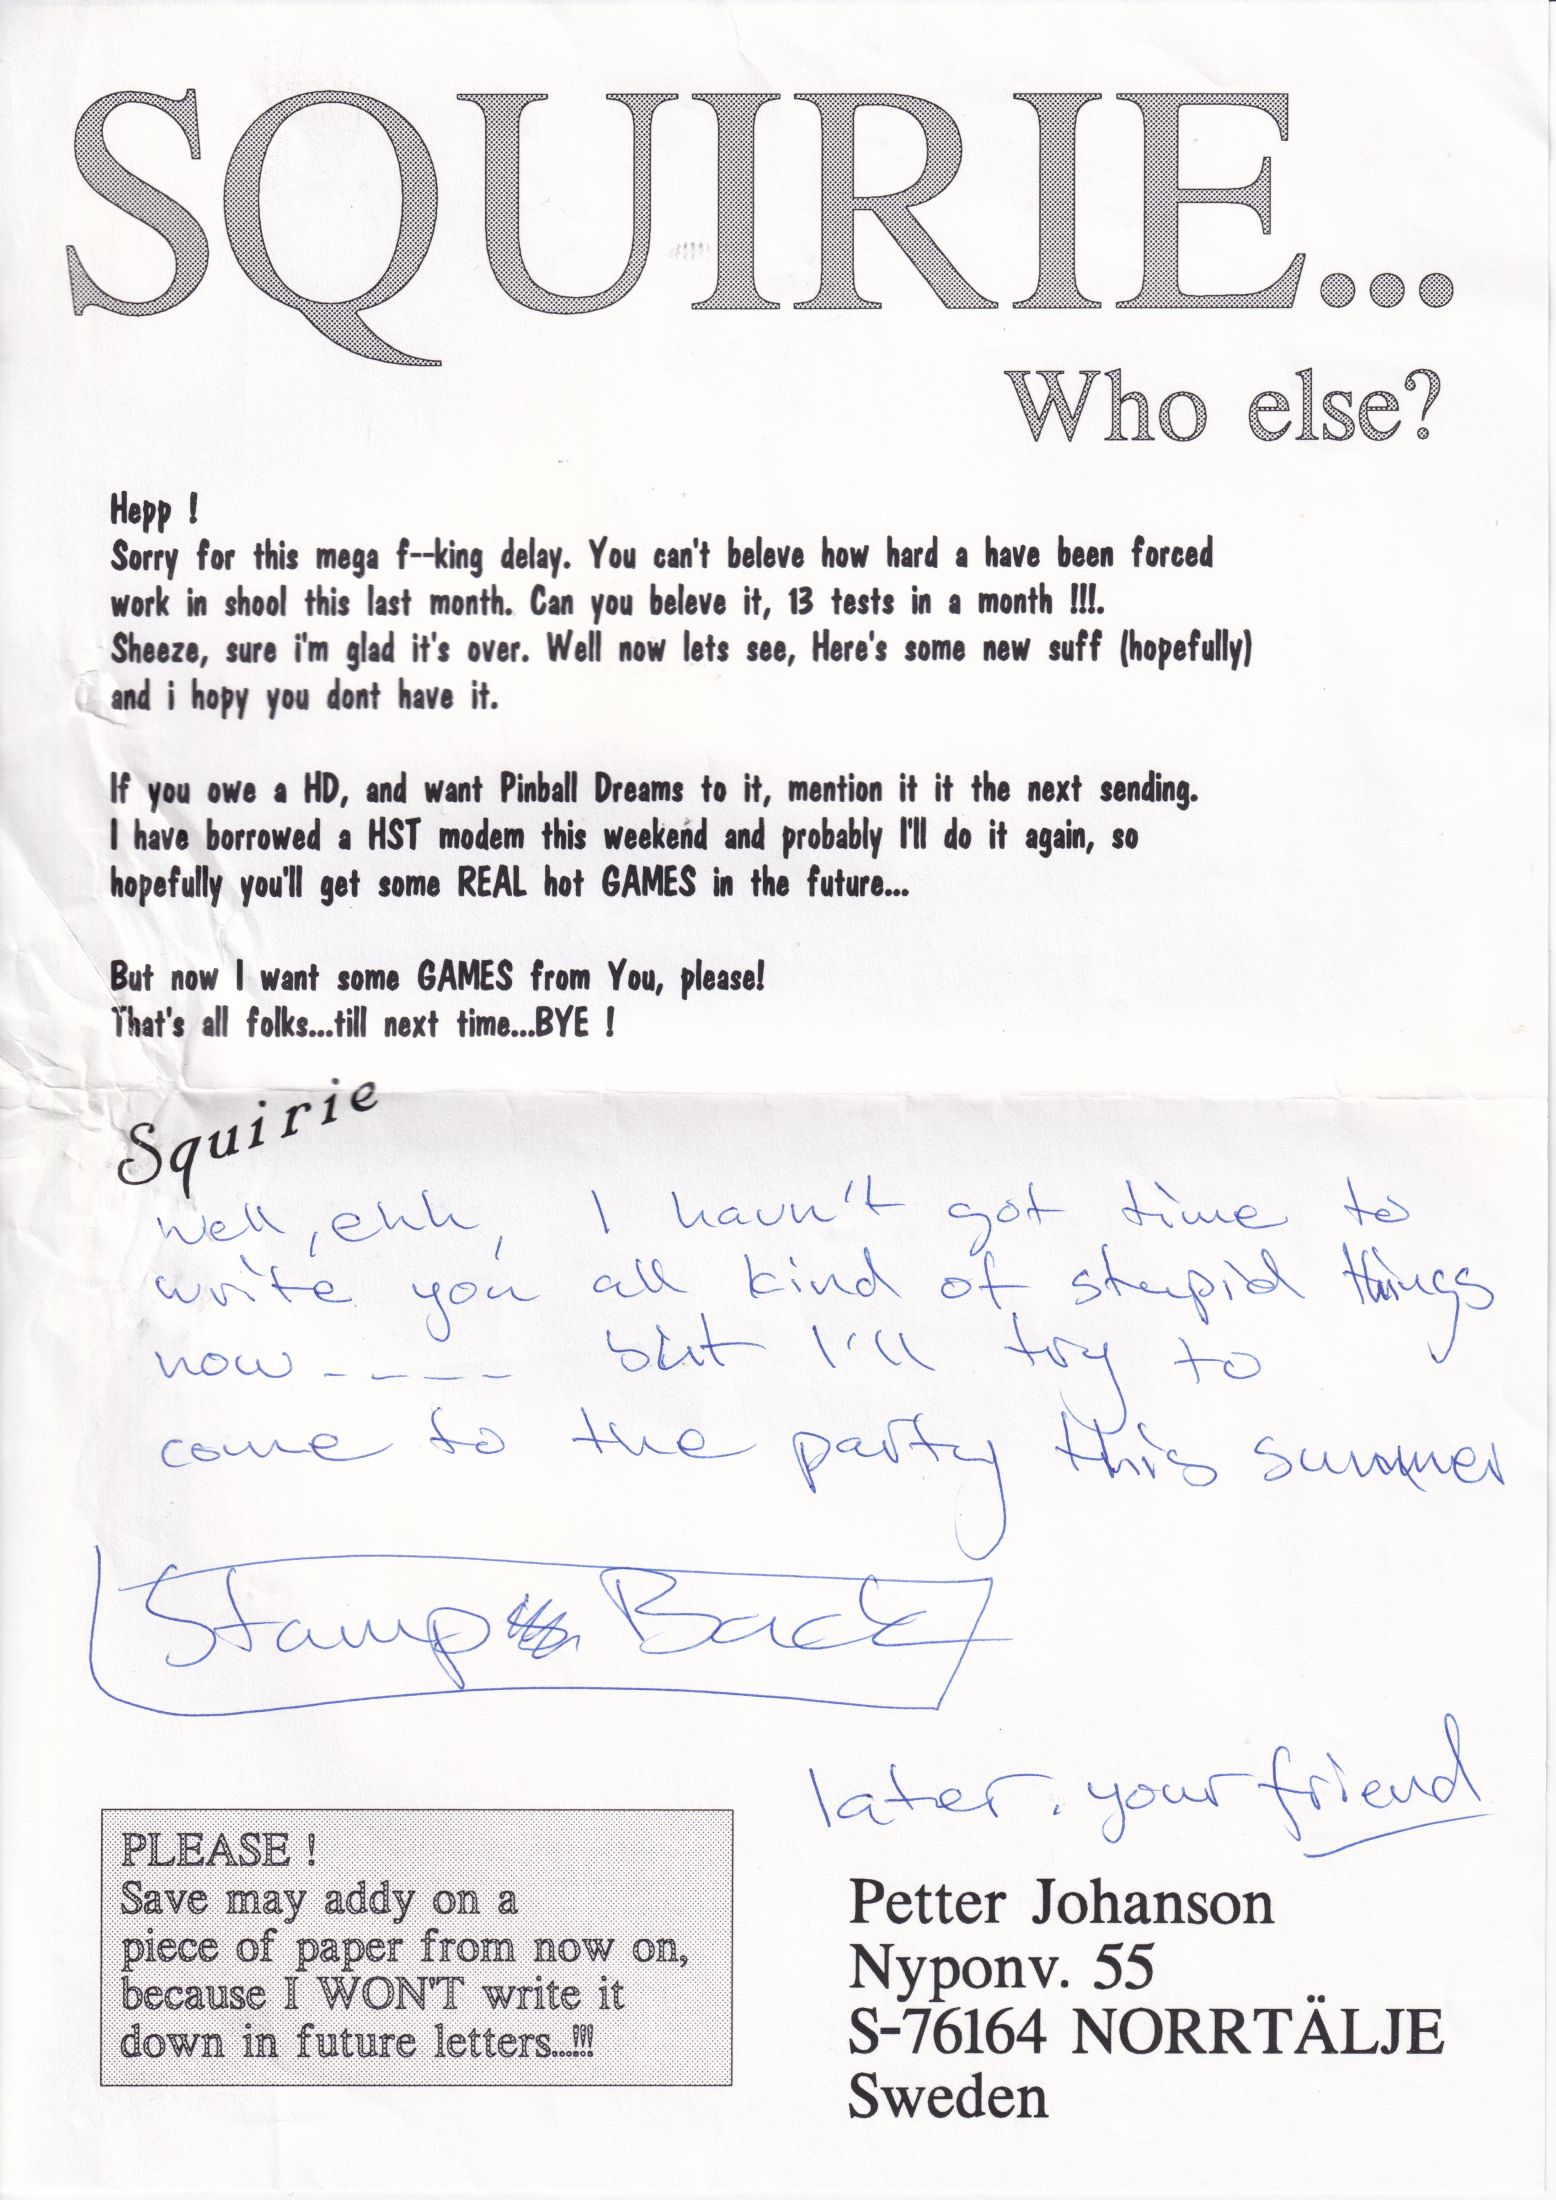 SQUIRIE...
Who else?
Hepp !
Sorry for this mega f--king delay. You can't beleve how hard a have been forced
work in shool this last month. Can you beleve it, 13 tests in a month !!!.
Sheeze, sure i'm glad it's over. Well now lets see, Here's some new suff (hopefully)
and i hopy you dont have it.
If you owe a HD, and want Pinball Dreams to it, mention it it the next sending.
I have borrowed a HST modem this weekend and probably I'll do it again, so
hopefully you'll get some REAL hot GAMES in the future...
But now I want some GAMES from You, please!
That's all folks...till next time...BYE !
Squirie
Well, ehh, I havn't got time to
write you all kind of stupid things
now ----- but I'll try to
come to the party this summer
Stamp Back
later. your friend
PLEASE !
Save may addy on a
piece of paper from now on,
because I WON'T write it
down in future letters...!!!
Petter Johanson
Nyponv. 55
S-76164 NORRTÄLJE
Sweden